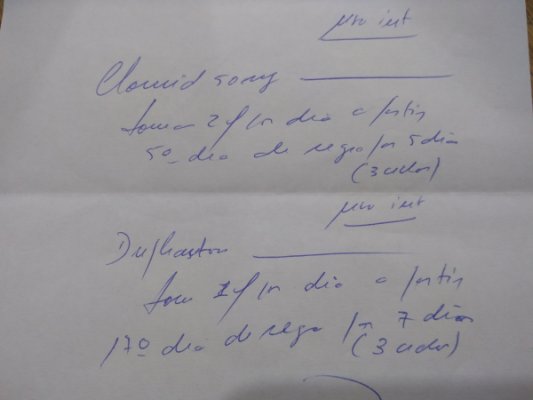 uso int
Clomid 50mg
tomar 2cp por dia a partir
5º dia de regra por 5 dias
(3 ciclos)
uso int
Duphaston
tomar 1cp por dia a partir
17º dia de regra por 7 dias
(3 ciclos)